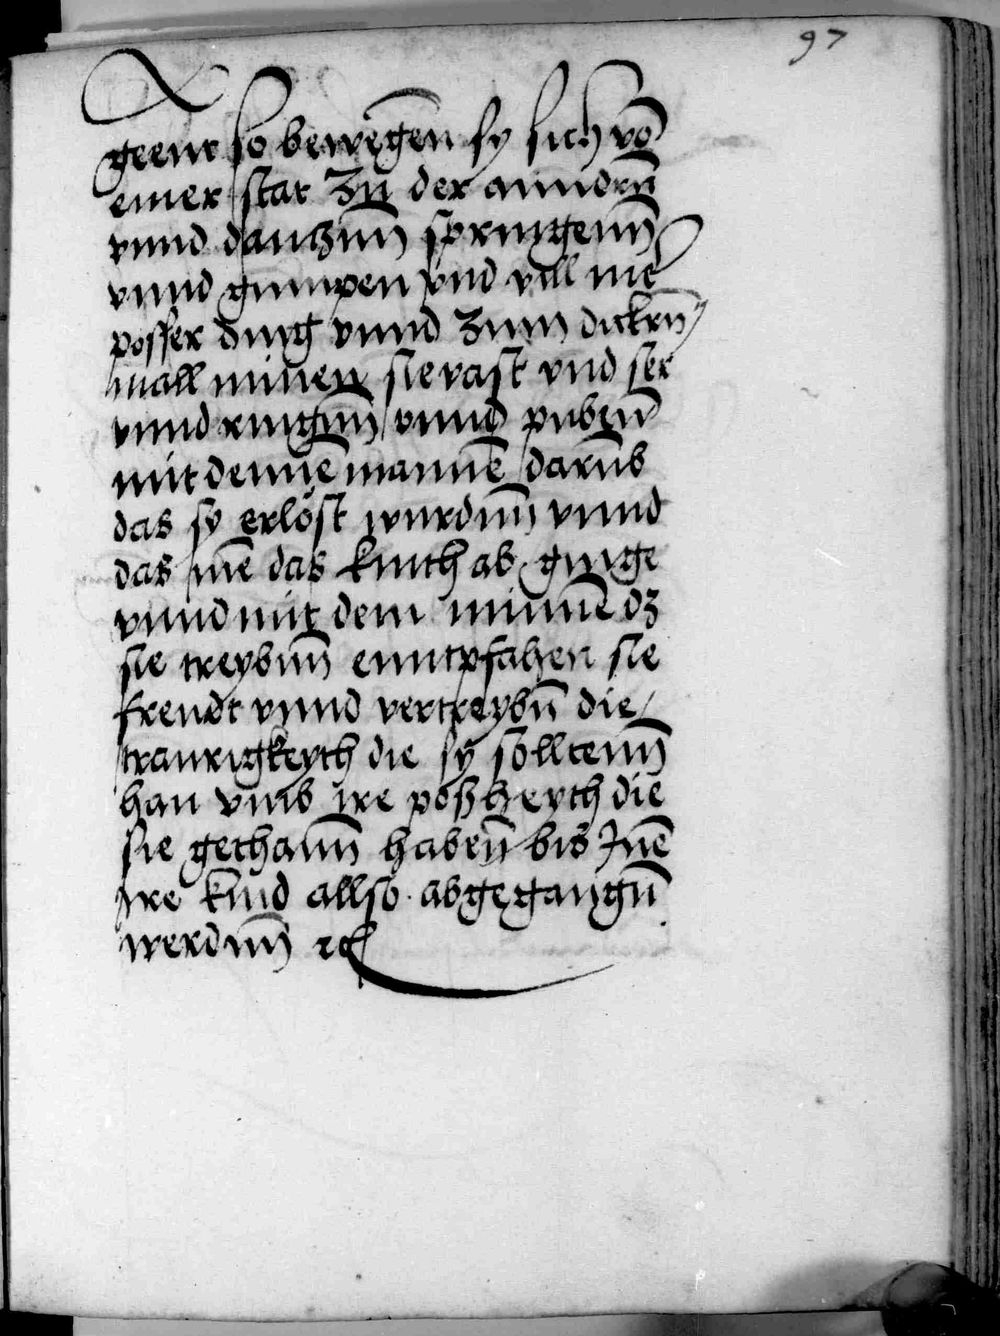 97
geent so bewegen sy sich vō
einer stat zu der anndrn̄
vnnd dantznn̄ springenn̄
vnnd gumpen vnd vill me
posser ding vnnd zum dickrn̄
mall minen sie vast vnd ser
vnnd ringnn̄ vnnd pubenn̄
mit dennē mannē darūb
das sy erlöst wurdnn̄ vnnd
das inē das kinth ab ginge
vnnd mit dem minnē dz
sie treybnn̄ enntpfahen sie
freudt vnnd vertreybn̄ die
traurigkeyth die sy solltenn̄
han vmb ire poßheyth die
sie gethann̄ habenn̄ bis Inē
ire kind allso abgegangn̄
werdnn̄ ꝛc